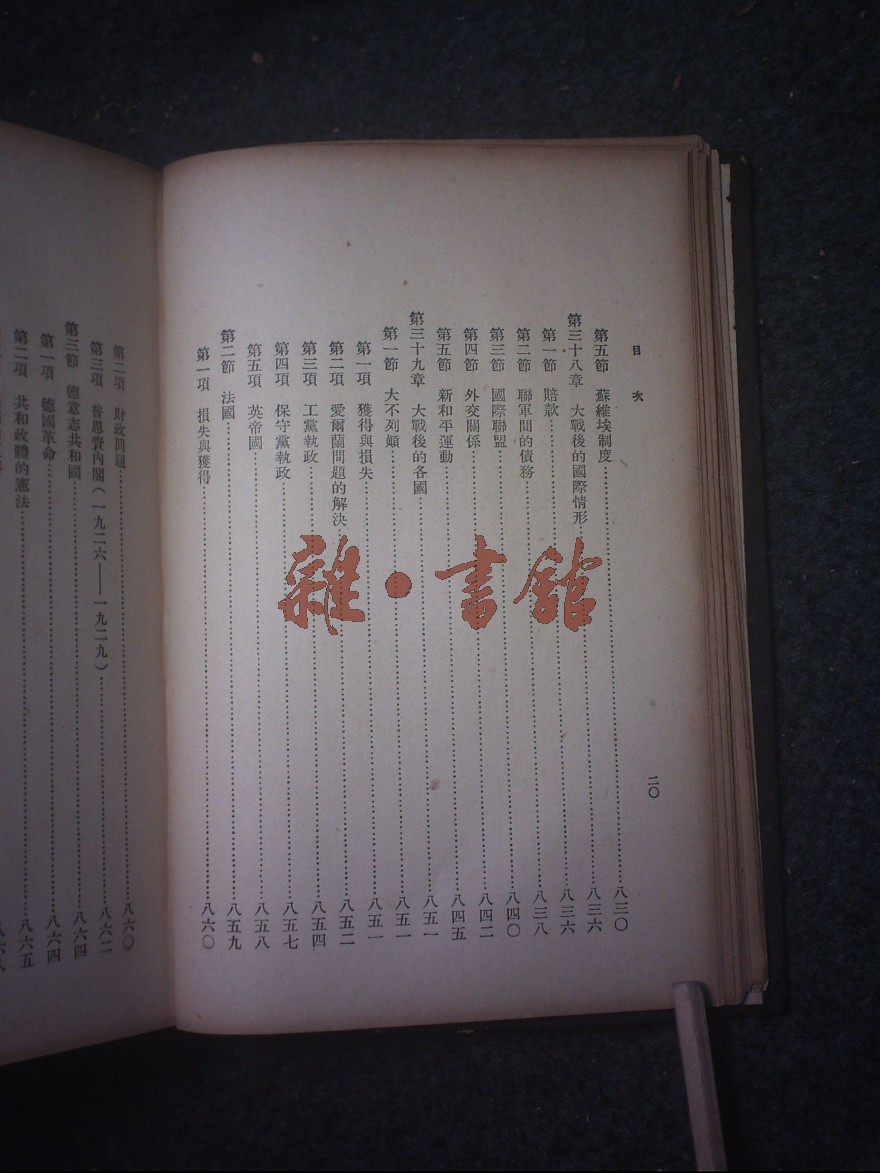 目次
二〇
第五節 蘇維埃制度……八三〇
第三十八章 大戰後的國際情形……八三六
第一節 賠款……八三六
第二節 聯軍間的債務……八三八
第三節 國際聯盟……八四〇
第四節 外交關係……八四二
第五節 新和平運動……八四五
第三十九章 大戰後的各國……八五一
第一節 大不列顛……八五一
第一項 獲得與損失……八五一
第二項 愛爾蘭問題的解決……八五二
第三項 工黨執政……八五四
第四項 保守黨執政……八五七
第五項 英帝國……八五八
第二節 法國……八五九
第一項 損失與獲得……八六〇
第二項 財政問題……八六〇
第三項 普恩賚內閣(一九二六——一九二九)……八六二
第三節 德意志共和國……八六四
第一項 德國革命……八六四
第二項 共和政體的憲法……八六五
雜·書館